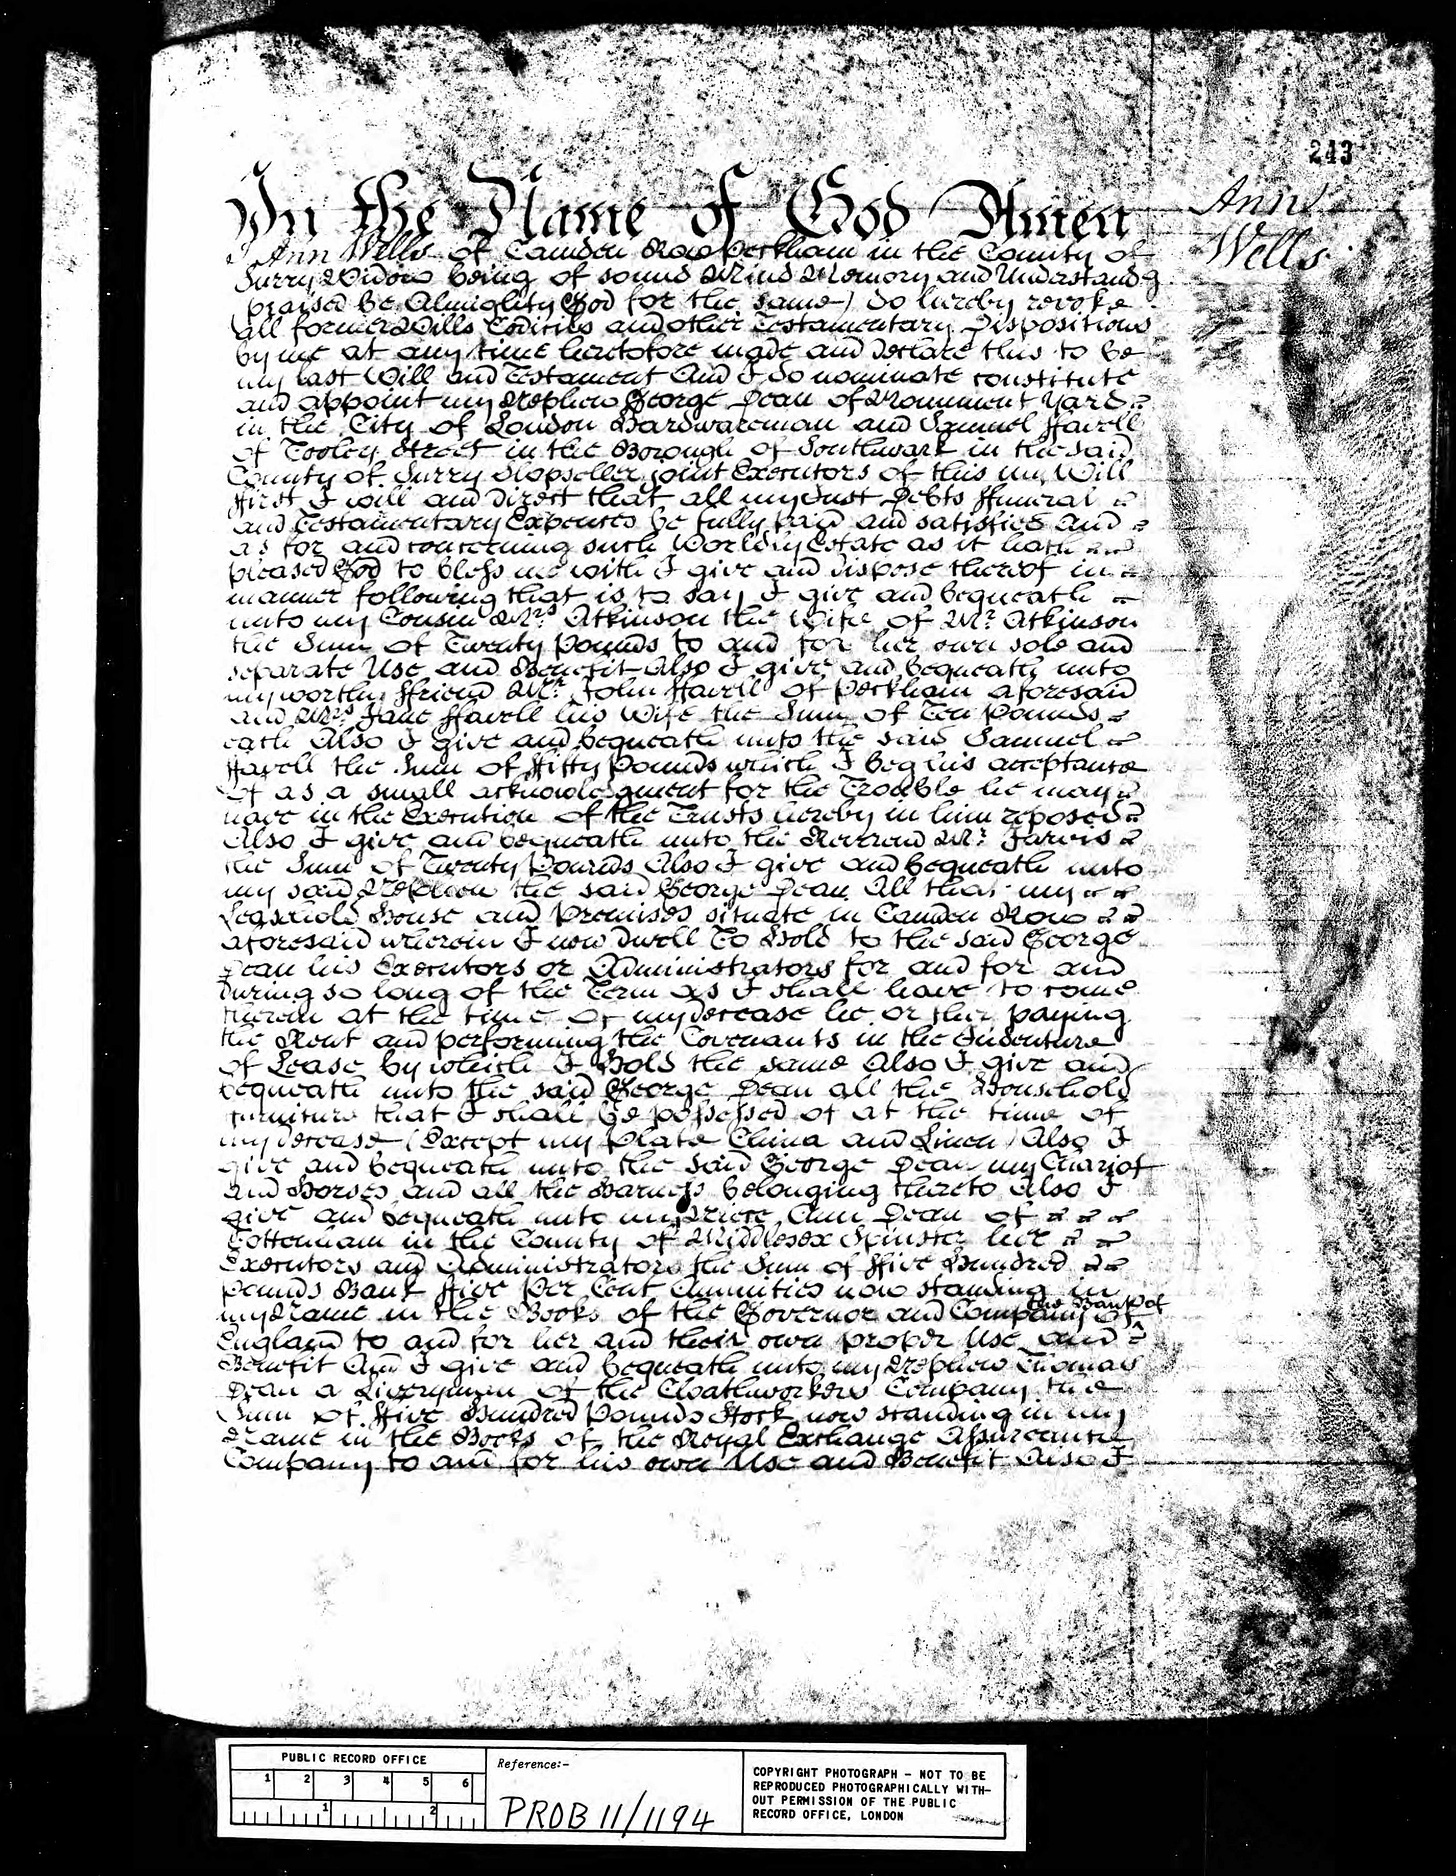 243
Ann
Wells
In the Name of God Amen
I Ann Wells of Camden Row Peckham in the County of
Surry Widow being of sound Mind Memory and Understandg
(praised be Almighty God for the same) do hereby revoke
all former Wills Codicils and other Testamentary Dispositions
by me at any time heretofore made and declare this to be
my last Will and Testament And I do nominate constitute
and appoint my Nephew George Dean of Monument Yard
in the City of London Hardwareman and Samuel Favell
of Tooley Street in the Borough of Southwark in the said
County of Surry Slopseller joint Executors of this my Will
ffirst I will and direct that all my just Debts ffuneral
and Testamentary Expences be fully paid and satisfied and
as for and concerning such Worldly Estate as it hath
pleased God to bless me with I give and dispose thereof in
manner following that is to say I give and bequeath
unto my Cousin Mrs. Atkinson the Wife of Mr. Atkinson
the Sum of Twenty Pounds to and for her own sole and
separate Use and Benefit Also I give and bequeath unto
my worthy ffriend Mr. John ffavell of Peckham aforesaid
and Mrs. Jane ffavell his Wife the Sum of Ten Pounds
each Also I give and bequeath unto the said Samuel
ffavell the Sum of ffifty Pounds which I beg his acceptance
of as a small acknowledgment for the Trouble he may
have in the Execution of the Trusts hereby in him reposed
Also I give and bequeath unto the Reverend Mr. Jarvis
the Sum of Twenty Pounds Also I give and bequeath unto
my said Nephew the said George Dean All that my
Leasehold House and Premises situate in Camden Row
aforesaid wherein I now dwell To Hold to the said George
Dean his Executors or Administrators for and for and
during so long of the Term as I shall have to come
therein at the time of my decease he or they paying
the Rent and performing the Covenants in the Indenture
of Lease by which I Hold the same Also I give and
bequeath unto the said George Dean all the Household
ffurniture that I shall be possessed of at the time of
my decease (Except my Plate China and Linen) Also I
give and bequeath unto the said George Dean my Chariot
and Horses and all the Harness belonging thereto Also I
give and bequeath unto my Niece Ann Dean of
Tottenham in the County of Middlesex Spinster her
Executors and Administrators the Sum of ffive Hundred
Pounds Bank ffive Per Cent Annuities now standing in
my Name in the Books of the Governor and Company of the Bank of
England to and for her and their own proper Use and
Benefit And I give and bequeath unto my Nephew Thomas
Dean a Liveryman of the Cloathworkers Company the
Sum of ffive Hundred Pounds Stock now standing in my
Name in the Books of the Royal Exchange Assurance
Company to and for his own Use and Benefit Also I
PUBLIC RECORD OFFICE
1 2 3 4 5 6
1 2
Reference:-
PROB 11/1194
COPYRIGHT PHOTOGRAPH - NOT TO BE
REPRODUCED PHOTOGRAPHICALLY WITH-
OUT PERMISSION OF THE PUBLIC
RECORD OFFICE, LONDON